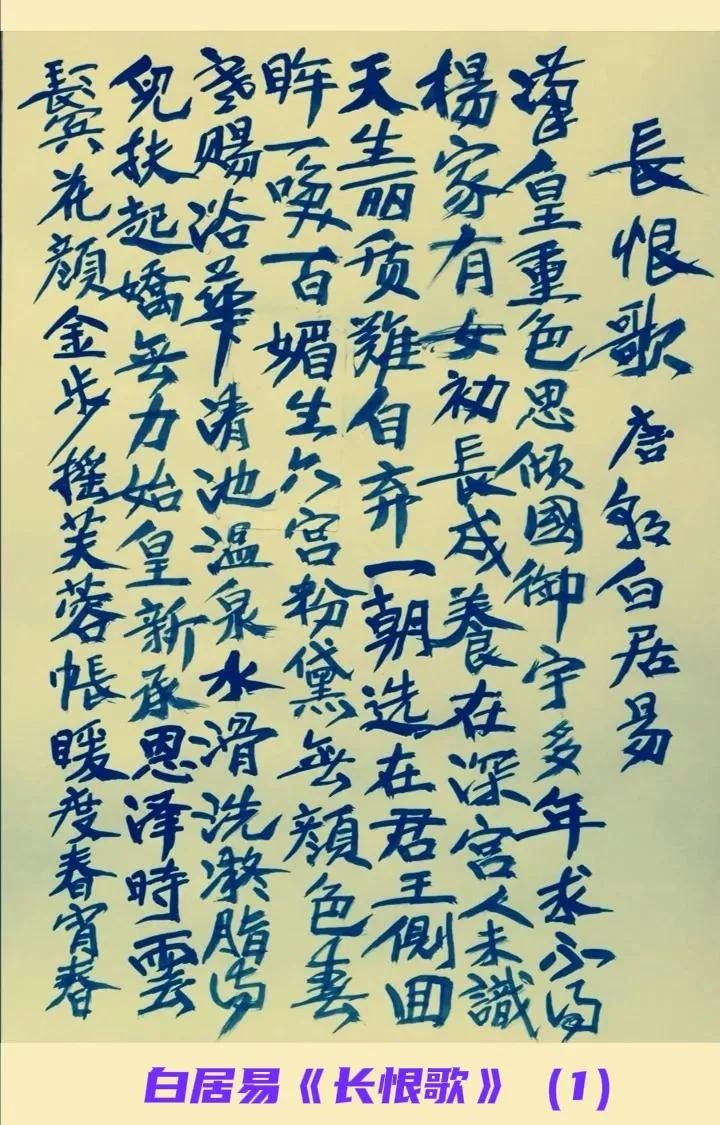 長恨歌 唐白居易
漢皇重色思倾國御宇多年求不得
楊家有女初長成養在深宫人未識
天生丽质難自弃一朝选在君王側回
眸一咲百媚生六宫粉黛無顔色春
寒赐浴華清池温泉水滑洗凝脂侍
兒扶起嬌無力始皇新承恩泽時雲
鬓花顔金步摇芙蓉帳暖度春宵春
白居易《长恨歌》（1）